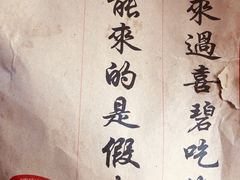 來過喜碧吃
能來的是假